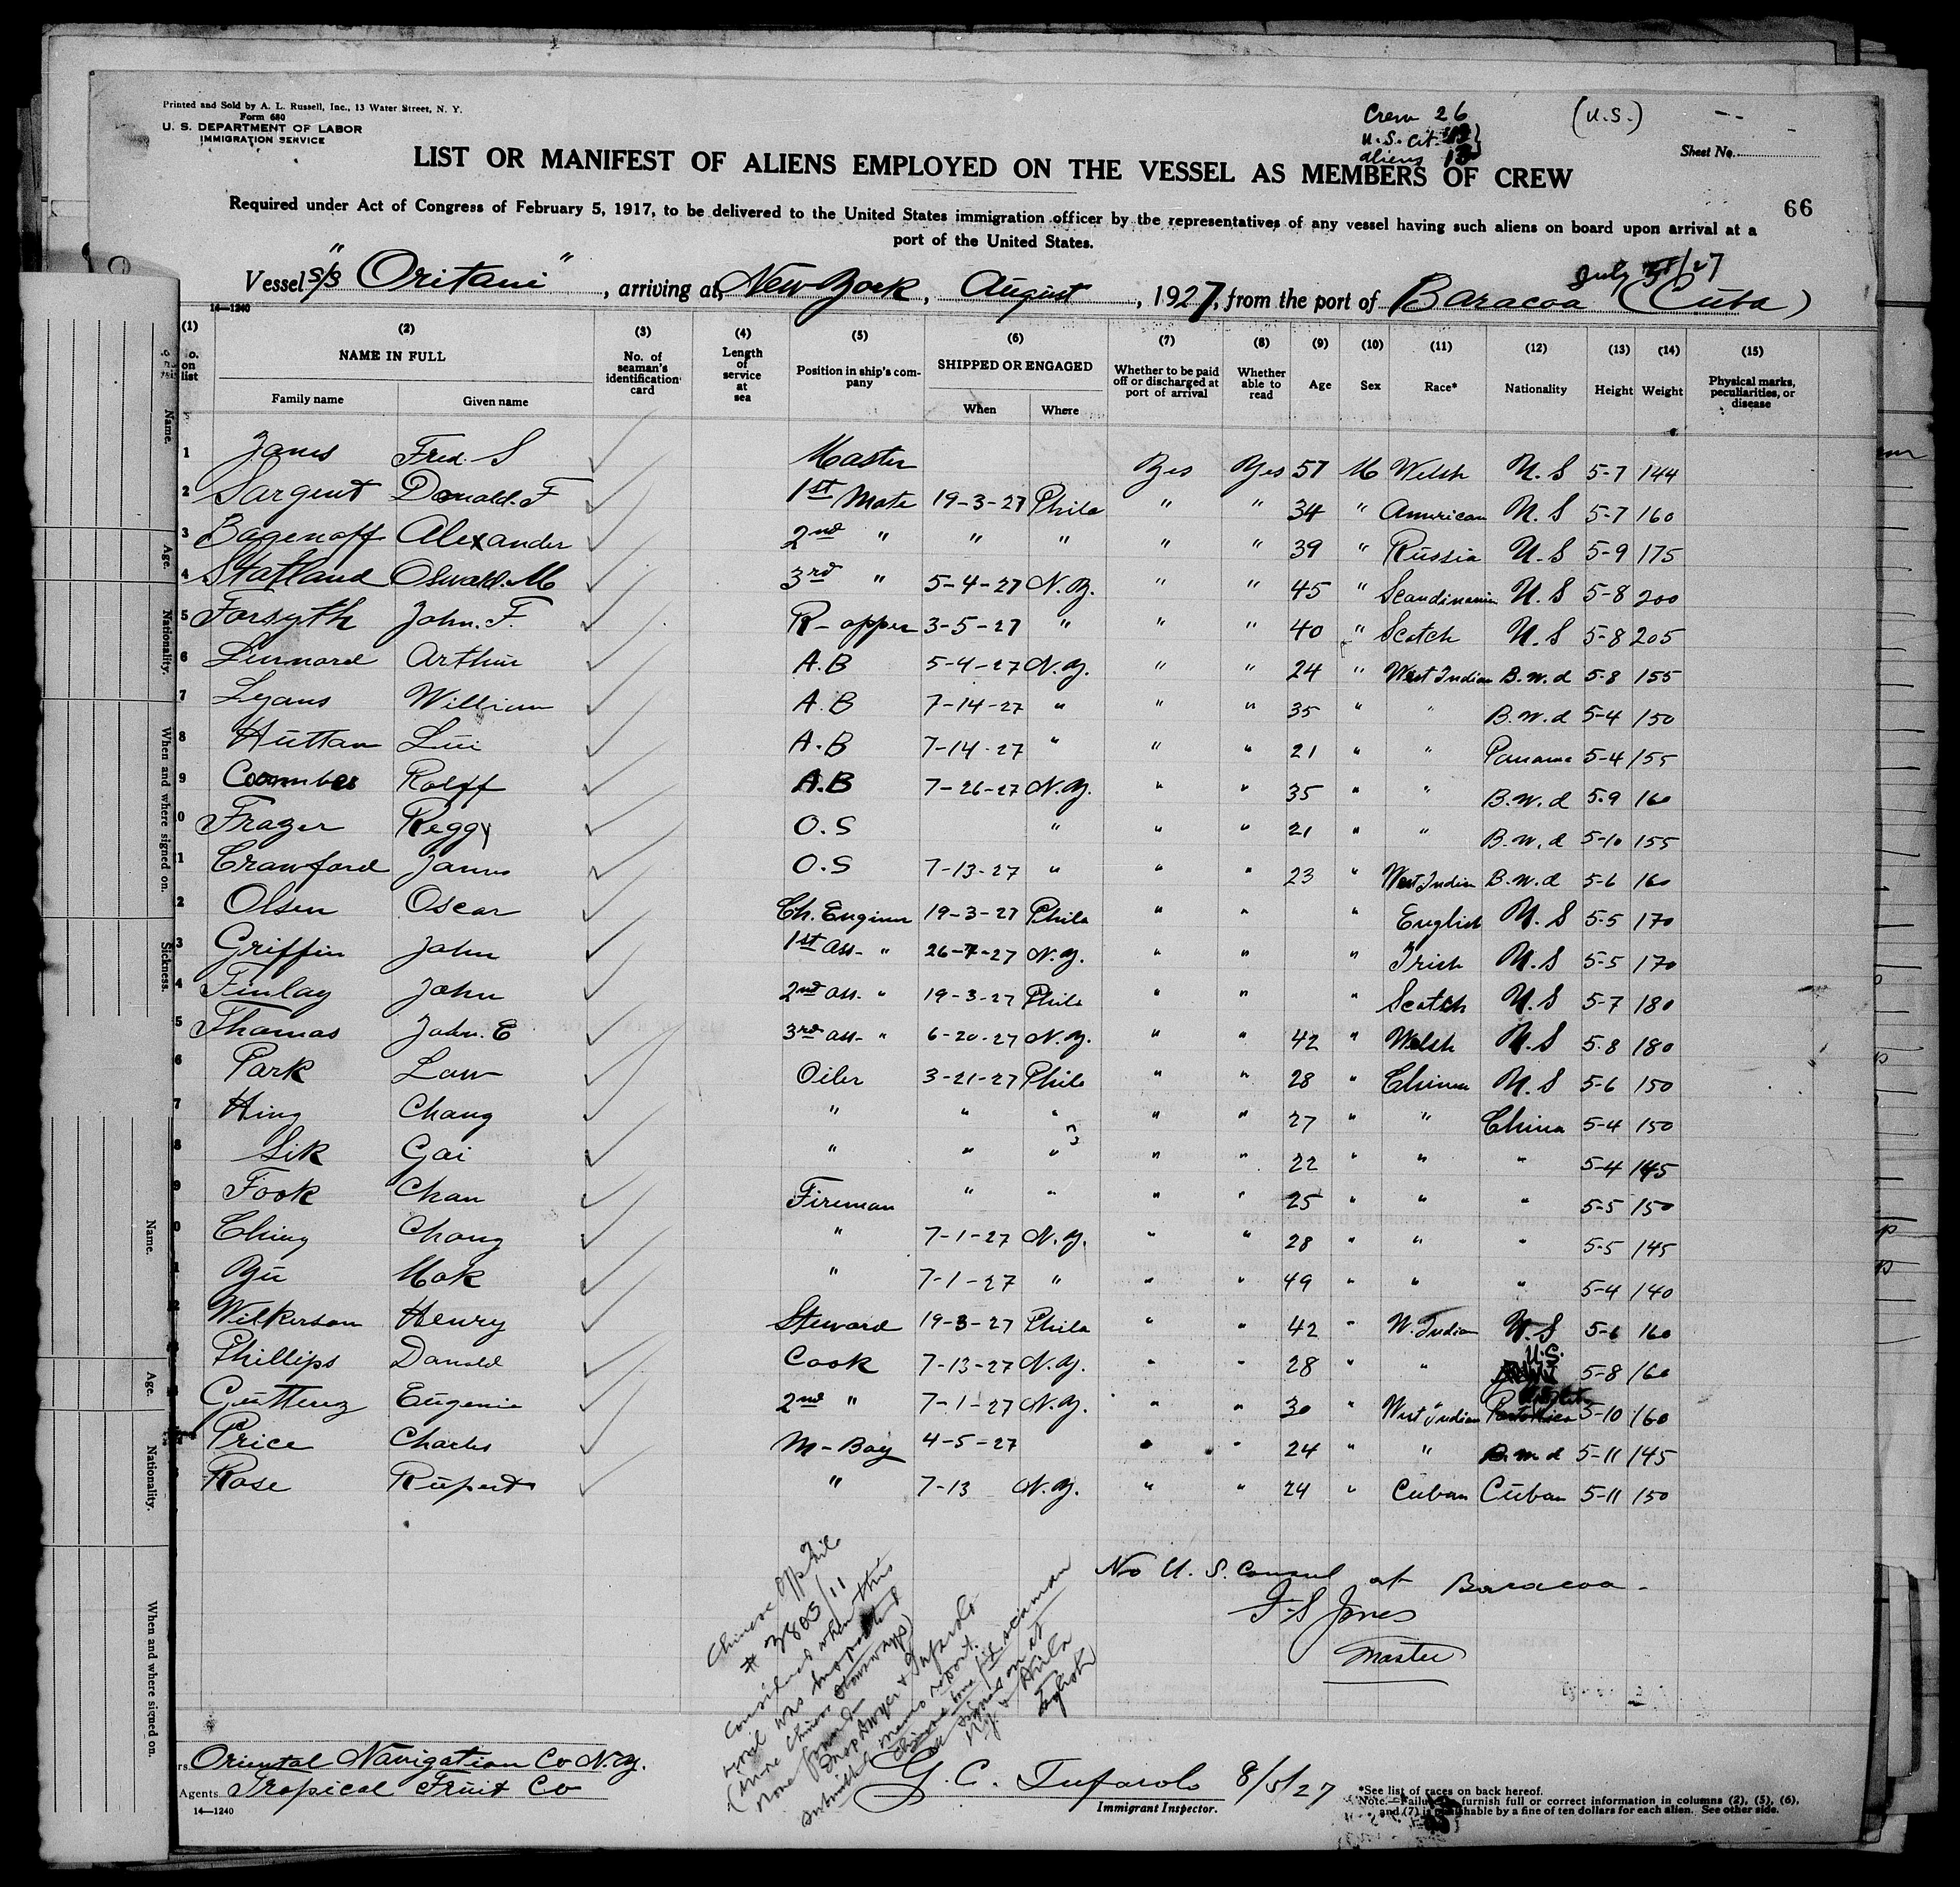 Printed and Sold by A. L. Russell, Inc., 13 Water Street, N. Y.
Form 680
U. S. DEPARTMENT OF LABOR
IMMIGRATION SERVICE
Crew 26
U.S. Cit. 13
aliens 13
(U.S.)
Sheet No.
LIST OR MANIFEST OF ALIENS EMPLOYED ON THE VESSEL AS MEMBERS OF CREW
66
Required under Act of Congress of February 5, 1917, to be delivered to the United States immigration officer by the representatives of any vessel having such aliens on board upon arrival at a
port of the United States.
Vessel S/S "Oritani", arriving at New York, August, 1927, from the port of Baracoa (Cuba)
July 31/27
14—1240
(1) (2) (3) (4) (5) (6) (7) (8) (9) (10) (11) (12) (13) (14) (15)
No. on list NAME IN FULL Family name Given name No. of seaman's identification card Length of service at sea Position in ship's company SHIPPED OR ENGAGED When Where Whether to be paid off or discharged at port of arrival Whether able to read Age Sex Race* Nationality Height Weight Physical marks, peculiarities, or disease
1 Jones Fred. S Master Yes Yes 57 M Welsh U.S 5-7 144
2 Sargent Donald. F 1st Mate 19-3-27 Phila " " 34 " American U.S 5-7 160
3 Bagenoff Alexander 2nd " " " " " 39 " Russia U.S 5-9 175
4 Statland Oswald. M 3rd " 5-4-27 N.Y. " " 45 " Scandinavian U.S 5-8 200
5 Forsyth John. F. R-opper 3-5-27 " " " 40 " Scotch U.S 5-8 205
6 Linnard Arthur A.B 5-4-27 N.Y. " " 24 " West Indian B.W.d 5-8 155
7 Lyons William A.B 7-14-27 " " " 35 " " B.W.d 5-4 150
8 Huttan Lui A.B 7-14-27 " " " 21 " " Panama 5-4 155
9 Coombes Rolff A.B 7-26-27 N.Y. " " 35 " " B.W.d 5.9 160
10 Frazer Reggy O.S " " " 21 " " B.W.d 5-10 155
11 Crawford James O.S 7-13-27 " " " 23 " West Indian B.W.d 5-6 160
2 Olsen Oscar Ch. Engineer 19-3-27 Phila " " " English U.S 5-5 170
3 Griffin John 1st Ass- " 26-7-27 N.Y. " " " Irish U.S 5-5 170
4 Finlay John 2nd ass. " 19-3-27 Phila " " " Scotch U.S 5-7 180
5 Thomas John. E 3rd ass- " 6-20-27 N.Y. " " 42 " Welsh U.S 5.8 180
6 Park Low Oiler 3-21-27 Phila " " 28 " Chinese U.S 5-6 150
7 Hing Chang " " " " " 27 " " China 5-4 150
8 Sik Gai " " " " " 22 " " " 5-4 145
9 Fook Chan Fireman " " " " 25 " " " 5-5 150
0 Ching Chong " 7-1-27 N.Y. " " 28 " " " 5-5 145
1 Yu Mok " 7-1-27 " " " 49 " " " 5-4 140
2 Wilkerson Henry Steward 19-3-27 Phila " " 42 " W. Indian U.S 5-6 160
Phillips Donald Cook 7-13-27 N.Y. " " 28 " " U.S. 5-8 160
Gutterez Eugenio 2nd " 7-1-27 N.Y. " " 30 " West Indian Porto Rico 5-10 160
Price Charles M-Boy 4-5-27 " " 24 " " B.W.d 5-11 145
Rose Rupert " 7-13 N.Y. " " 24 " Cuban Cuban 5-11 150
No U.S. Consul at Baracoa.
F. S Jones
Master
Chinese
# 3803/11
considered when this
was inspected
(more Chinese stowaways)
none found
Insp Dwyer & Tufarolo
submitted memo report.
Chinese bona fide seaman
signed on at
N.Y. & Phila
Oriental Navigation Co N.Y.
Agents Tropical Fruit Co
14—1240
G. C. Tufarolo 8/5/27
Immigrant Inspector.
*See list of races on back hereof.
Note.—Failure to furnish full or correct information in columns (2), (5), (6),
and (7) is punishable by a fine of ten dollars for each alien. See other side.
Name.
Age.
Nationality.
When and where signed on.
Sickness.
Name.
Age.
Nationality.
When and where signed on.